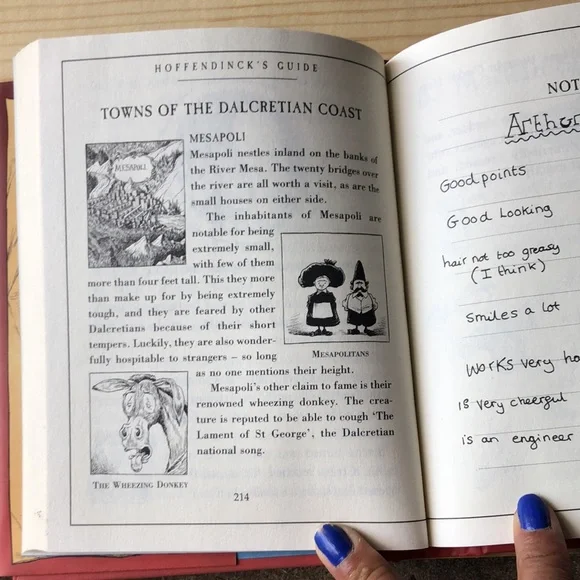 HOFFENDINCK'S GUIDE
TOWNS OF THE DALCRETIAN COAST
MESAPOLI
MESAPOLI
Mesapoli nestles inland on the banks of
the River Mesa. The twenty bridges over
the river are all worth a visit, as are the
small houses on either side.
The inhabitants of Mesapoli are
notable for being
extremely small,
with few of them
more than four feet tall. This they more
than make up for by being extremely
tough, and they are feared by other
Dalcretians because of their short
tempers. Luckily, they are also wonder-
fully hospitable to strangers – so long
as no one mentions their height.
MESAPOLITANS
Mesapoli's other claim to fame is their
renowned wheezing donkey. The crea-
ture is reputed to be able to cough 'The
Lament of St George', the Dalcretian
national song.
THE WHEEZING DONKEY
214
NOT
Arthur
Good points
Good Looking
hair not too greasy
(I think)
Smiles a lot
Works very ha
is very cheerful
is an engineer